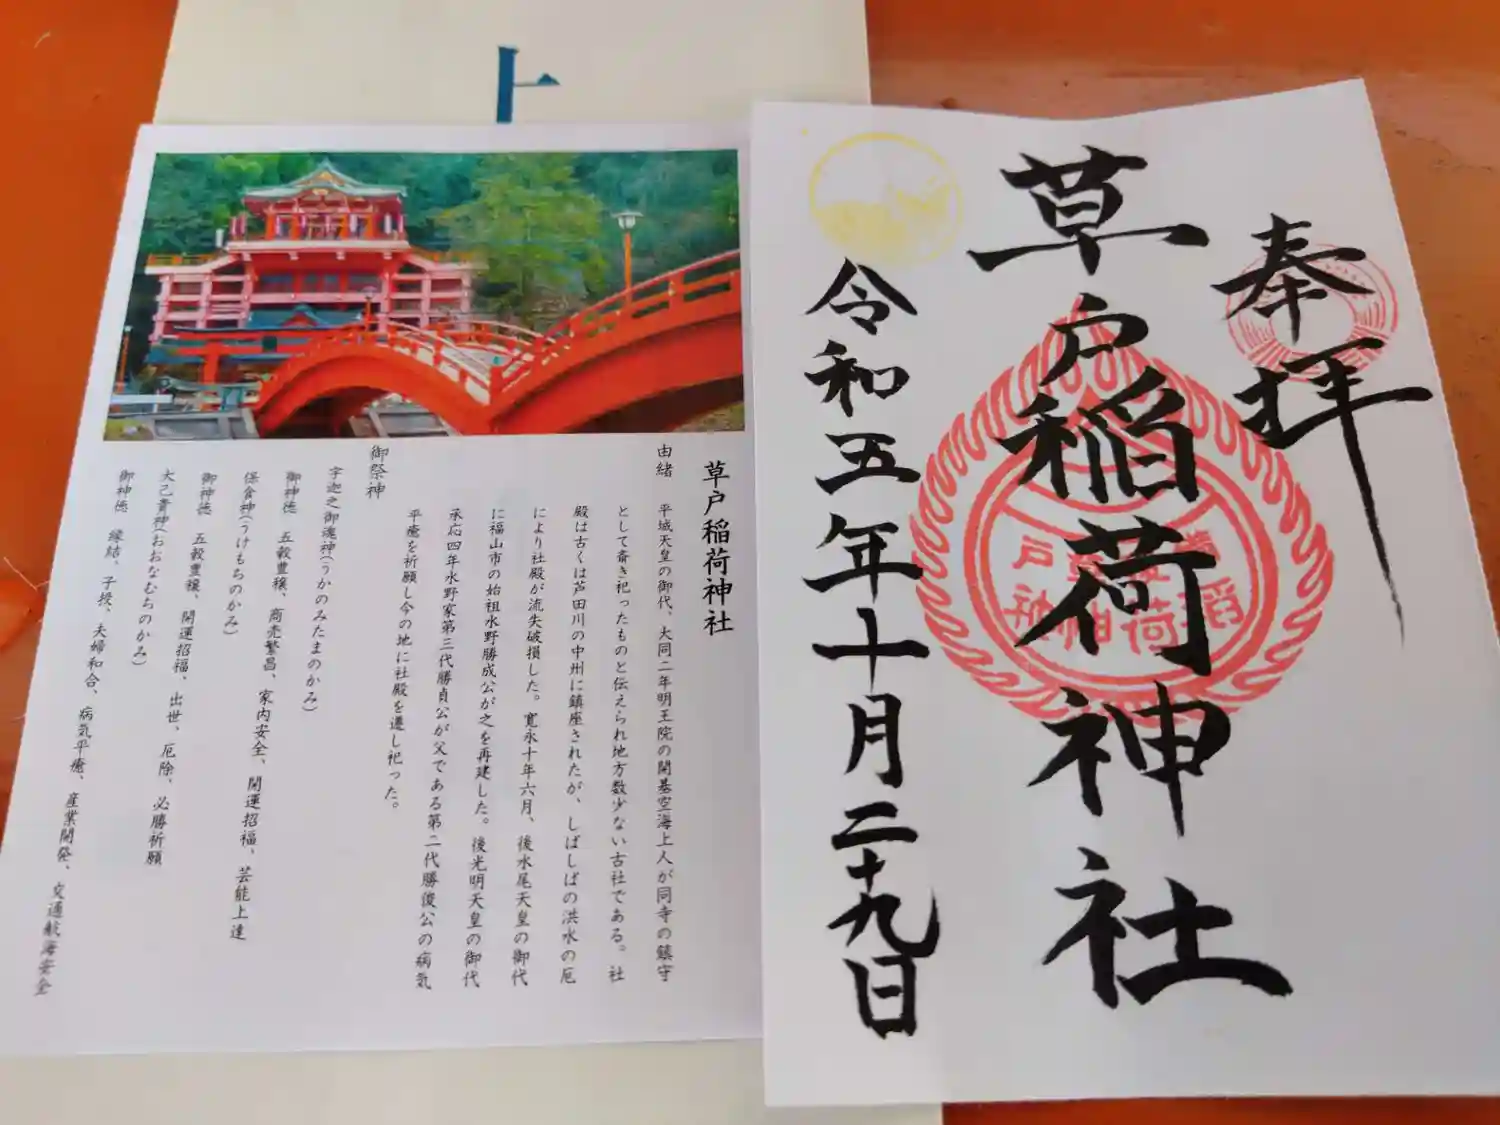 上
草戸稲荷神社
由緒　平城天皇の御代、大同二年明王院の開基空海上人が同寺の鎮守
として斎き祀ったものと伝えられ地方数少ない古社である。社
殿は古くは芦田川の中州に鎮座されたが、しばしばの洪水の厄
により社殿が流失破損した。寛永十年六月、後水尾天皇の御代
に福山市の始祖水野勝成公が之を再建した。後光明天皇の御代
承応四年水野家第三代勝貞公が父である第二代勝俊公の病気
平癒を祈願し今の地に社殿を遷し祀った。
御祭神
宇迦之御魂神(うかのみたまのかみ)
御神徳　五穀豊穣、商売繁昌、家内安全、開運招福、芸能上達
保食神(うけもちのかみ)
御神徳　五穀豊穣、開運招福、出世、厄除、必勝祈願
大己貴神(おおなむちのかみ)
御神徳　縁結、子授、夫婦和合、病気平癒、産業開発、交通航海安全
奉拝
草戸稲荷神社
令和五年十月二十九日